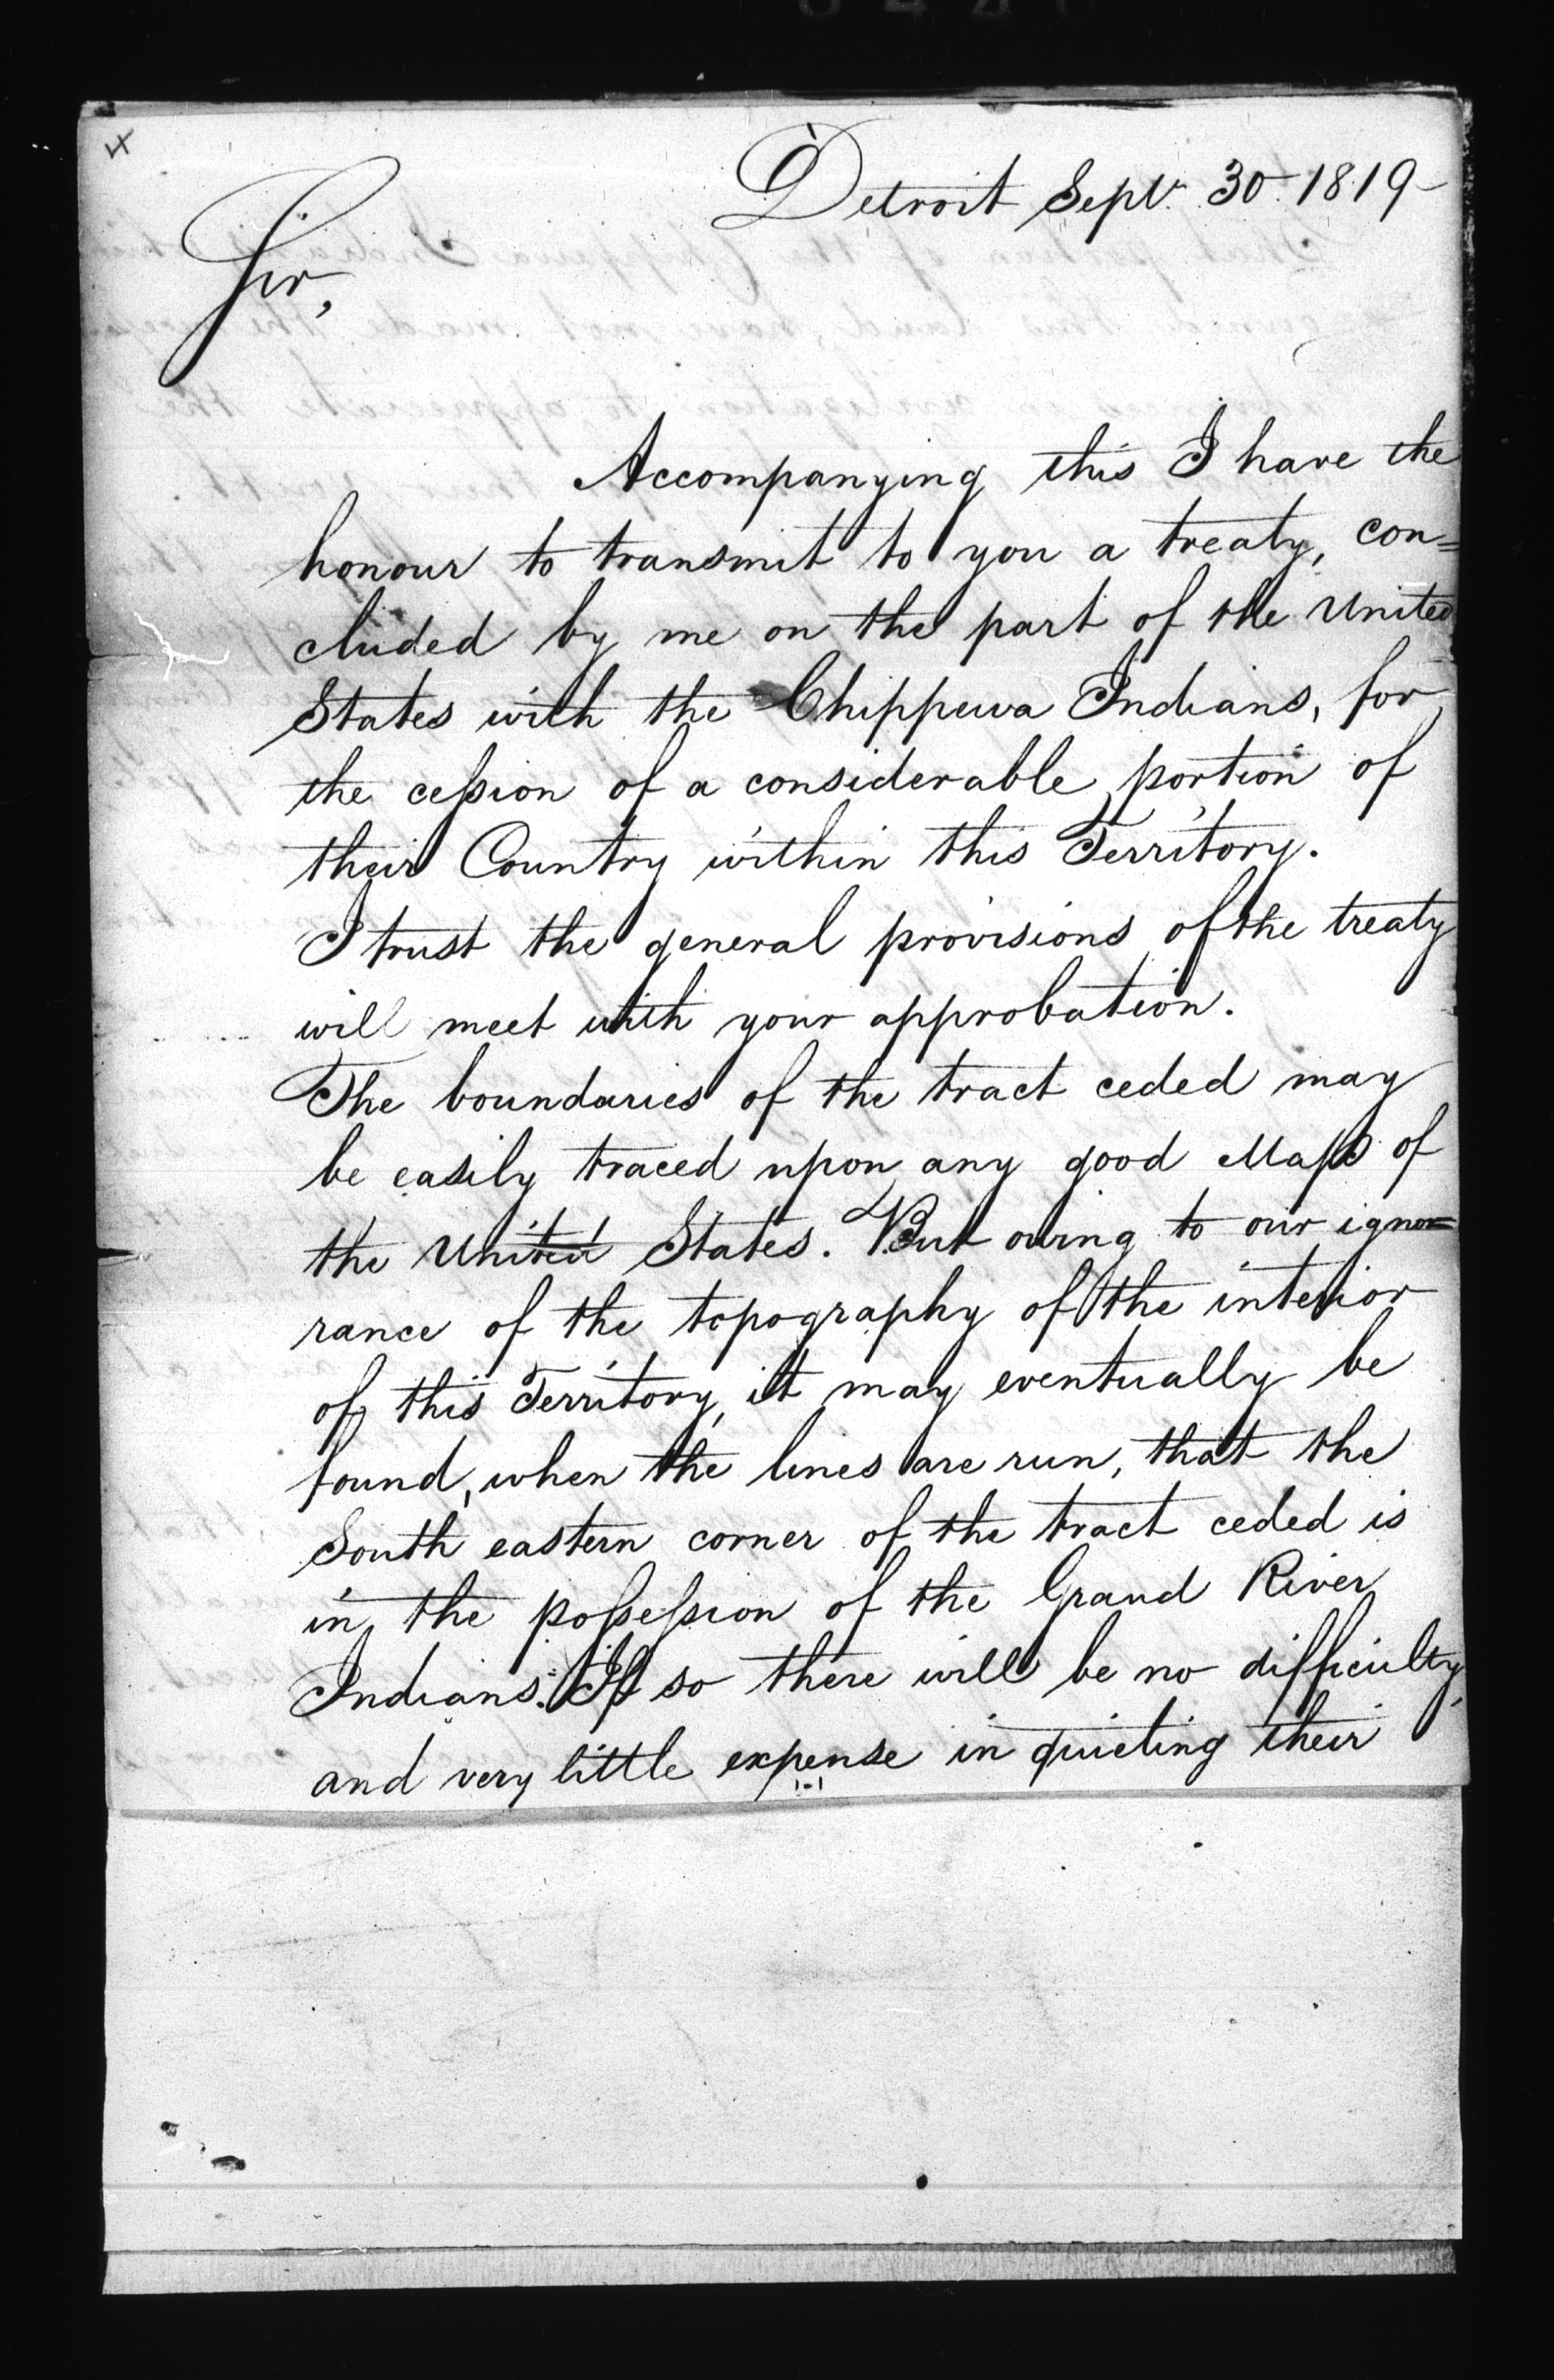 4
Detroit Sept. 30. 1819
Sir,
Accompanying this I have the
honour to transmit to you a treaty, con=
cluded by me on the part of the United
States with the Chippewa Indians, for
the cession of a considerable portion of
their Country within this Territory.
I trust the general provisions of the treaty
will meet with your approbation.
The boundaries of the tract ceded may
be easily traced upon any good Maps of
the United States. But owing to our igno=
rance of the topography of the interior
of this Territory, it may eventually be
found, when the lines are run, that the
South eastern corner of the tract ceded is
in the possession of the Grand River
Indians. If so there will be no difficulty,
and very little expense in quieting their